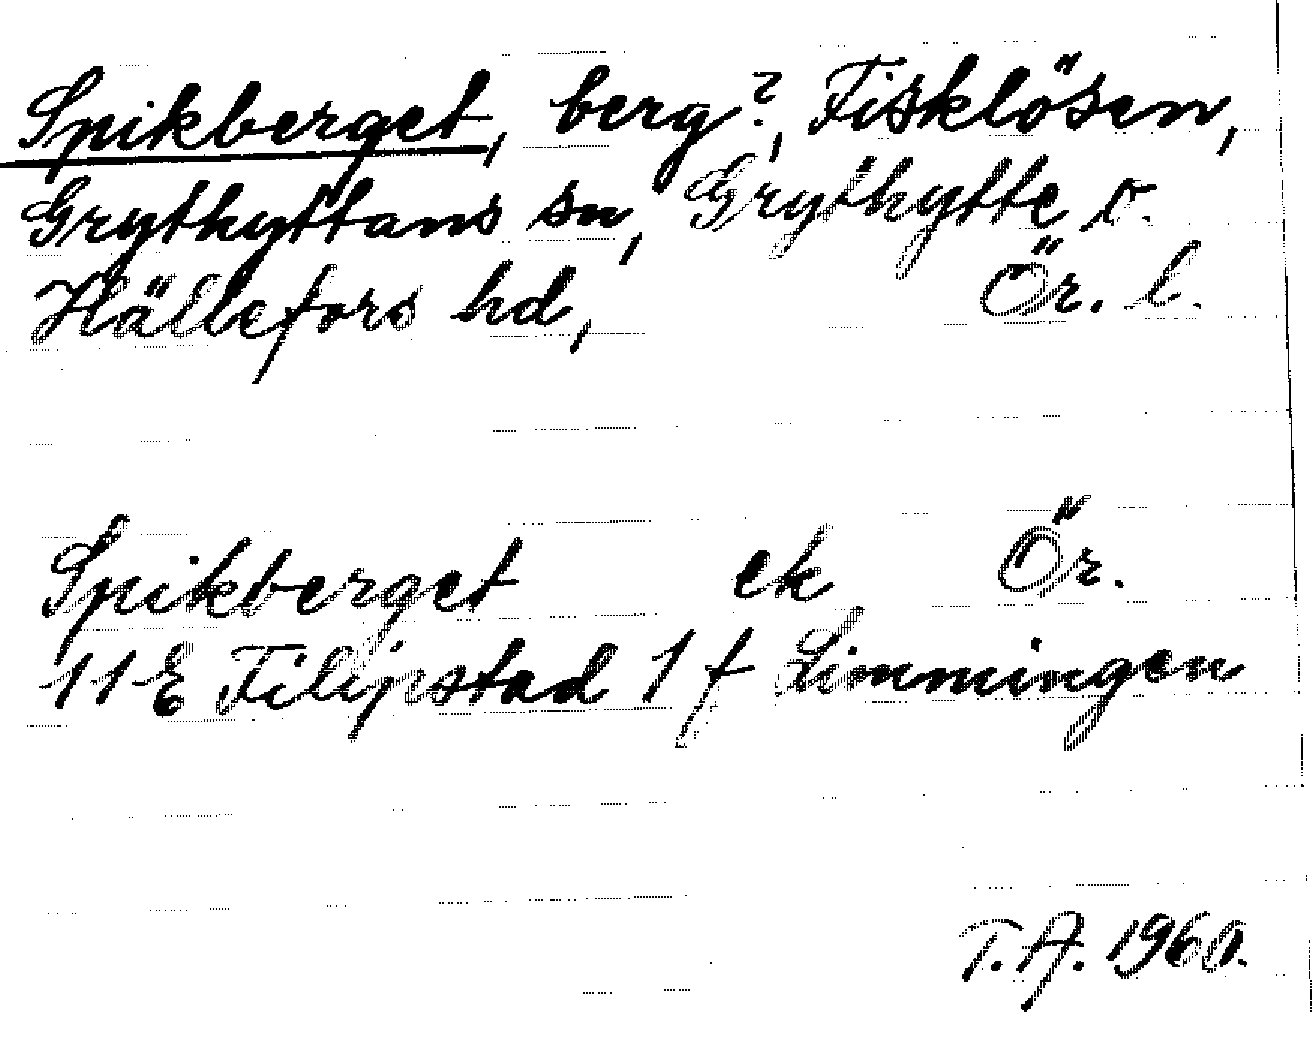 Spikberget, berg?, Fisklösen,
Grythyttans sn, Grythytte o.
Hällefors hd, Ör. l.
Spikberget ek Ör.
11E Filipstad 1f Limmingen
T.A. 1960.